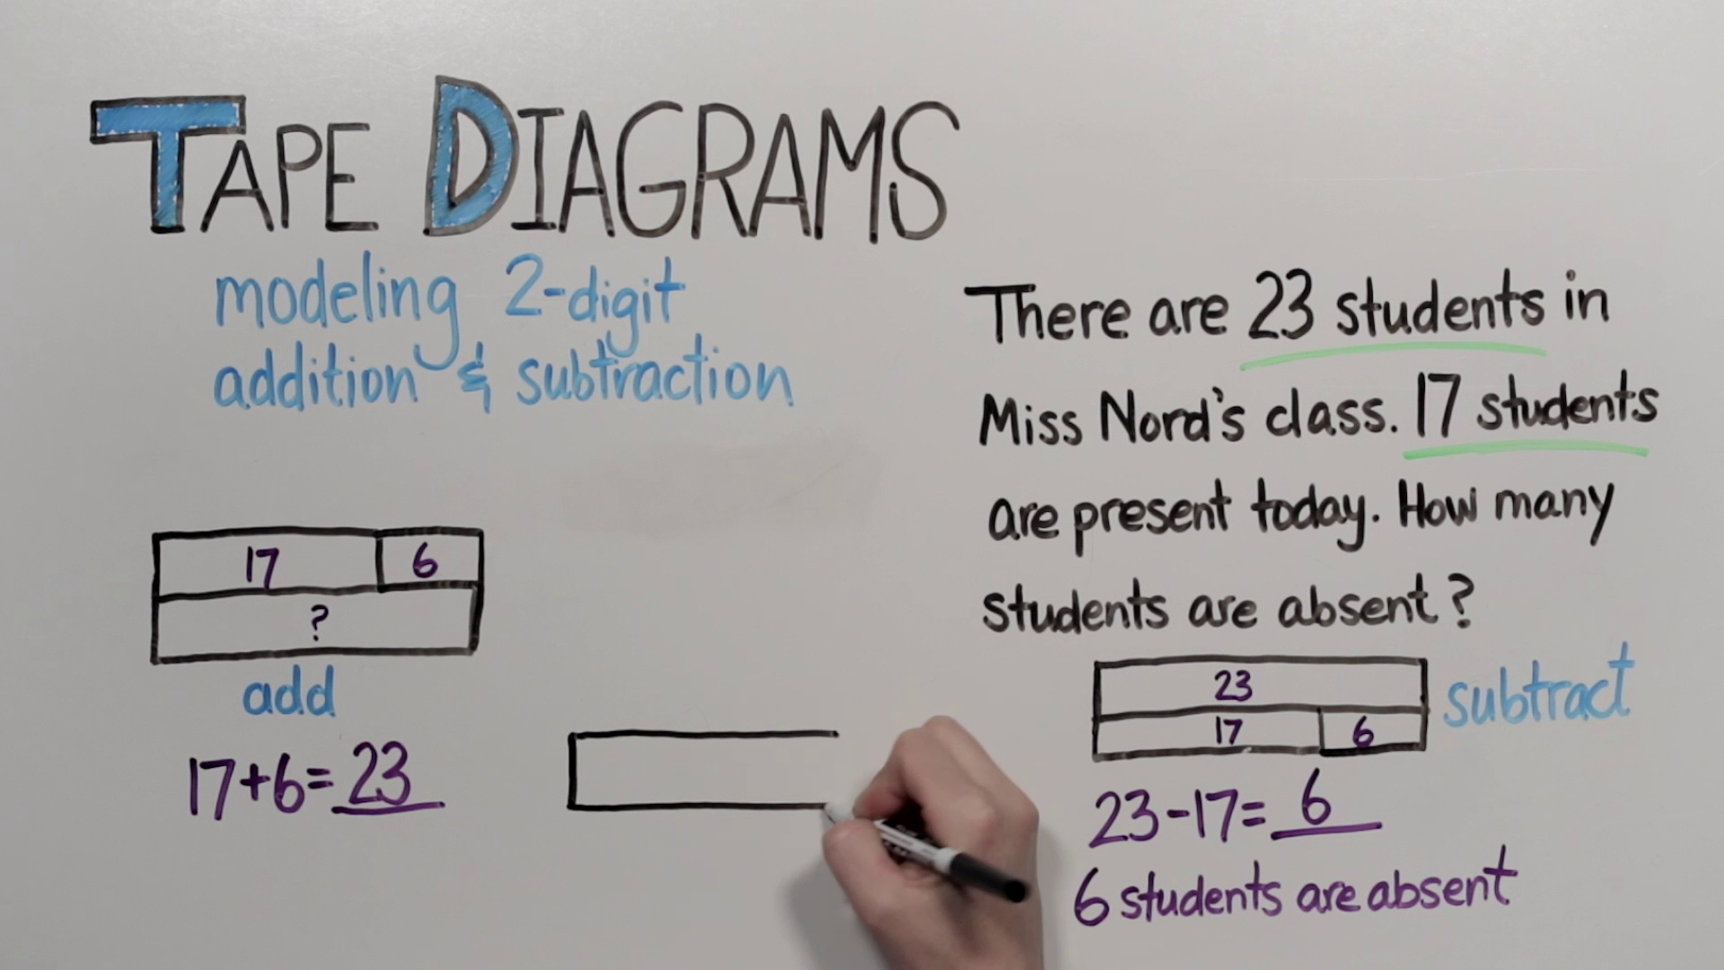 TAPE DIAGRAMS
modeling 2-digit
addition & subtraction
There are 23 students in
Miss Nord's class. 17 students
are present today. How many
students are absent?
17 6
?
add
17+6=23
23
17 6
subtract
23-17=6
6 students are absent